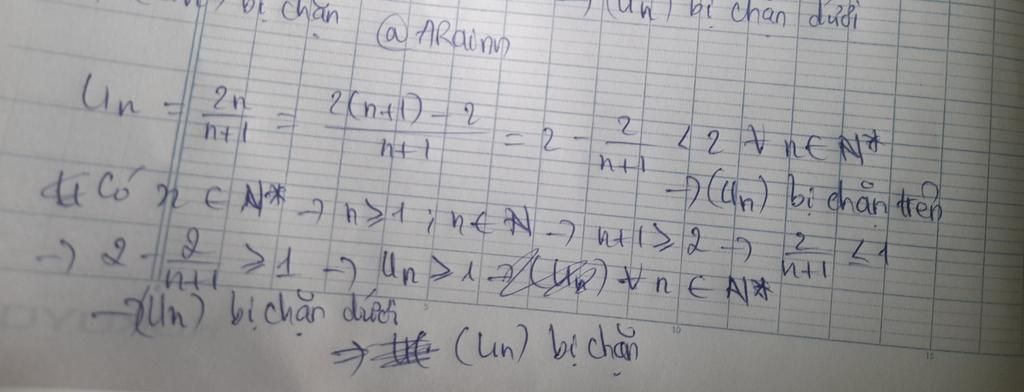 bị chặn → (Un) bị chặn dưới
@ARainn
Un = 2n/(n+1) = (2(n+1) - 2)/(n+1) = 2 - 2/(n+1) < 2 ∀ n ∈ N*
→ (Un) bị chặn trên
Có n ∈ N* → n ≥ 1 ; n ∈ N → n+1 ≥ 2 → 2/(n+1) ≤ 1
→ 2 - 2/(n+1) ≥ 1 → Un ≥ 1 ∀ n ∈ N*
→ (Un) bị chặn dưới
⇒ (Un) bị chặn